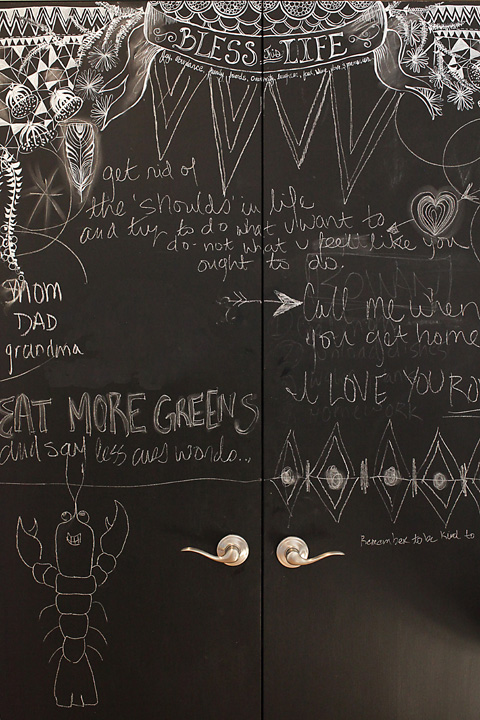 BLESS this LIFE
get rid of
the 'shoulds' in life
and try to do what u want to
do - not what u feel like you
ought to do.
MOM
DAD
grandma
Call me when
you get home
I LOVE YOU
EAT MORE GREENS
and say less cuss words...
Remember to be kind to